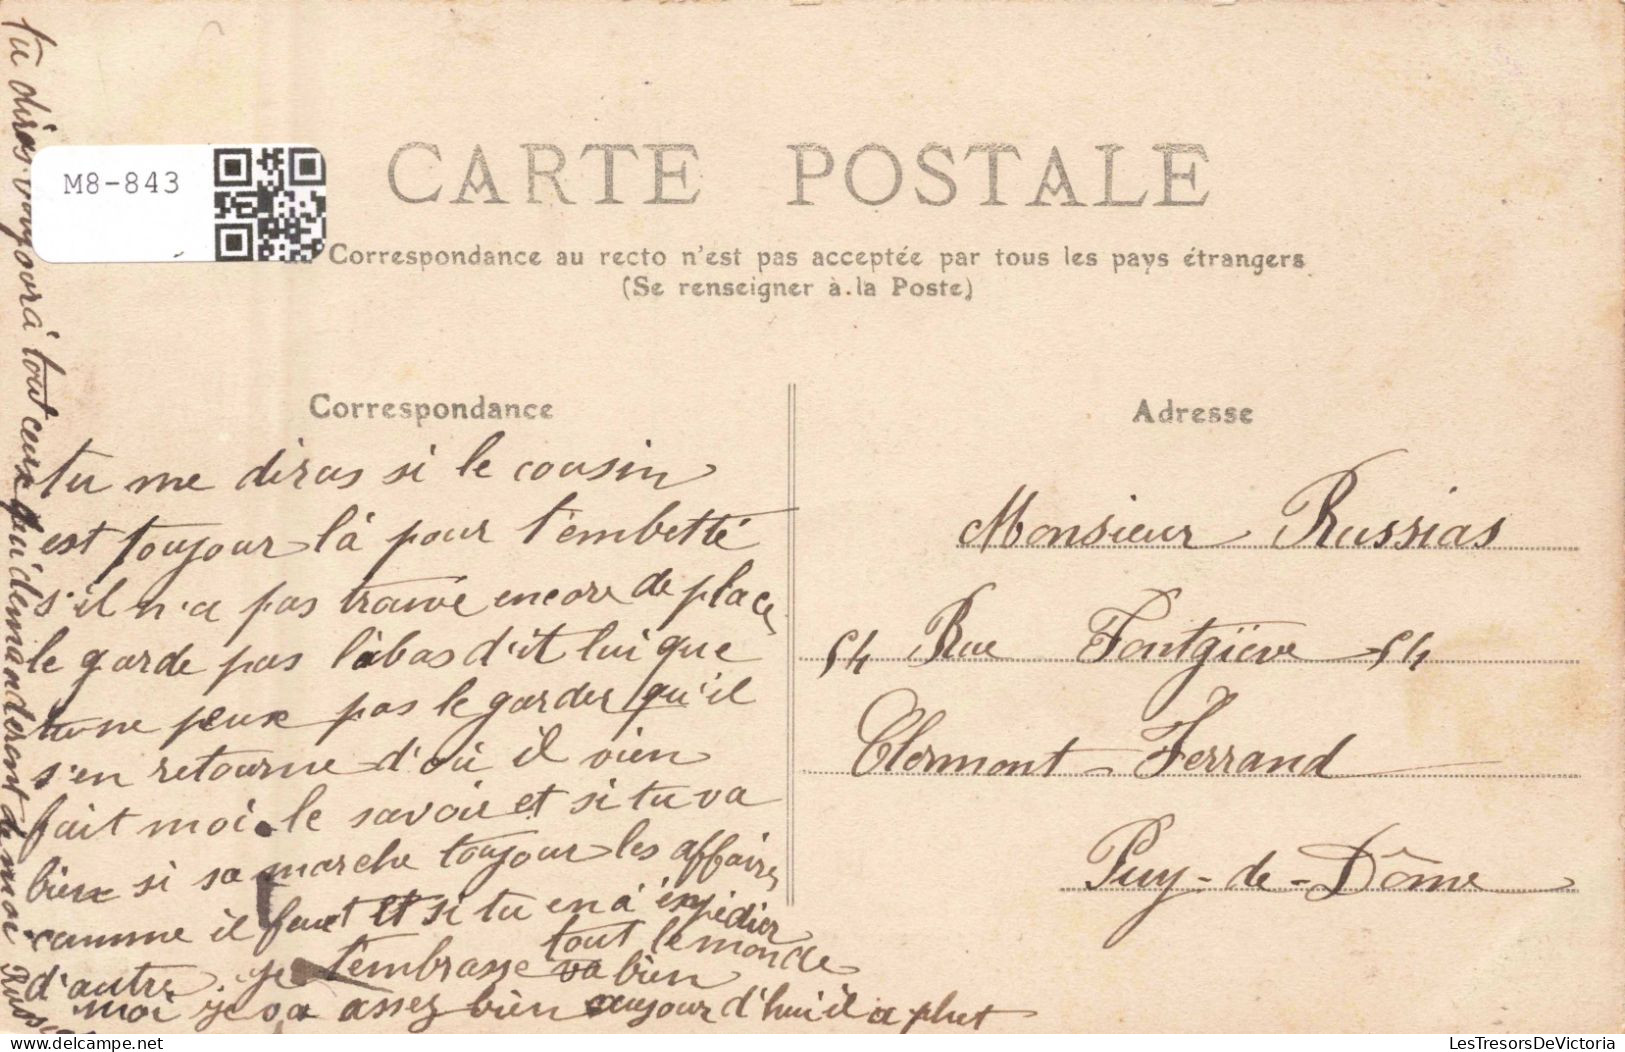 M8-843
CARTE POSTALE
Correspondance au recto n'est pas acceptée par tous les pays étrangers
(Se renseigner à la Poste)
Correspondance
tu me diras si le cousin
est toujour là pour t'embetté
s'il n'a pas trouvé encore de place
le garde pas làbas dit lui que
tu ne peux pas le garder qu'il
s'en retourne d'où il vien
fait moi le savoir et si tu va
bien si sa marche toujour les affaires
comme il faut et si tu en a éxpédier
d'autre. je t'embrasse tout le monde
va bien
moi je va assez bien aujour d'hui il a plut
tu diras bonjour à tout ceux qui demanderont de moi
Adresse
Monsieur Russias
54 Rue Fontgïeve 54
Clermont-Ferrand
Puy-de-Dôme
LesTresorsDeVictoria
LesTresorsDeVictoria.com